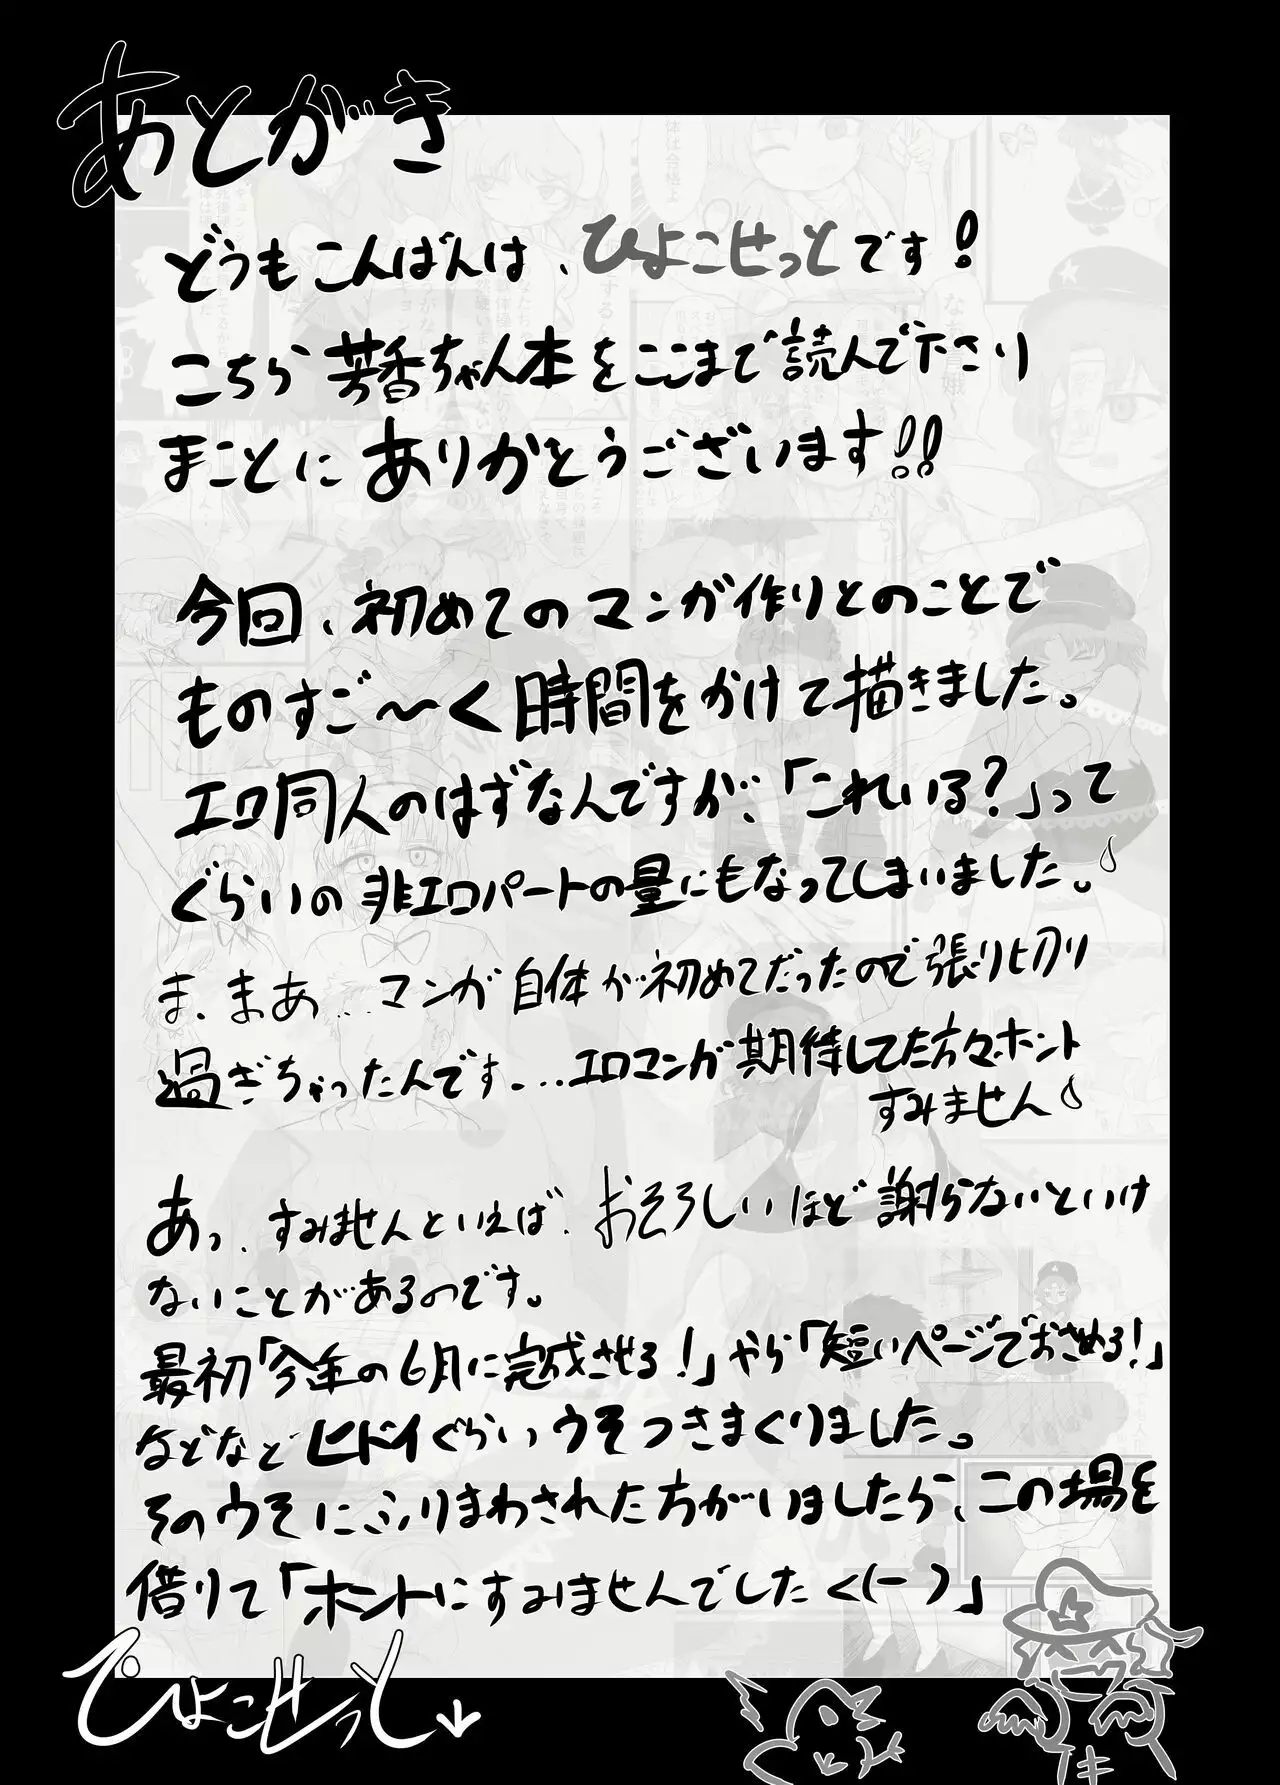 あとがき
どうもこんばんは、ひよこせっとです!
こちら芳香ちゃん本をここまで読んで下さり
まことにありがとうございます!!
今回、初めてのマンガ作りとのことで
ものすご~く時間をかけて描きました。
エロ同人のはずなんですが、「これいる?」って
ぐらいの非エロパートの量にもなってしまいました。
ま、まあ...マンガ自体が初めてだったので張り切り
過ぎちゃったんです...エロマンガ期待してた方々、ホント
すみません
あっ、すみませんといえば、おそろしいほど謝らないといけ
ないことがあるのです。
最初「今年の6月に完成させる!」やら「短いページでおさめる!」
などなどヒドイぐらいウソつきまくりました。
そのウソにふりまわされた方がいましたら、この場を
借りて「ホントにすみませんでした<(ー)」
ひよこせっと↓